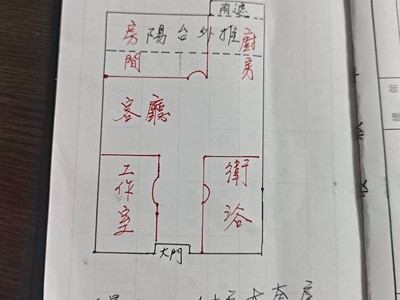 雨遮
房間
陽台外推
廚房
客廳
工作室
衛浴
大門